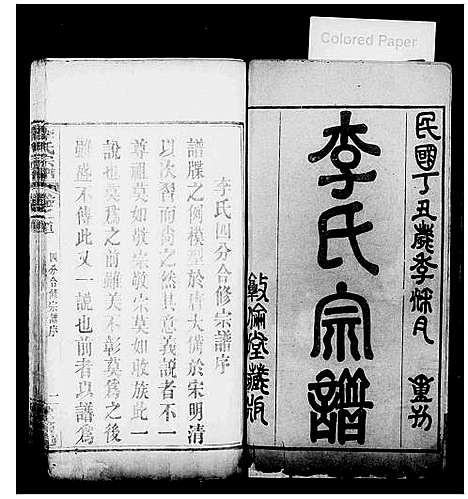 Colored Paper
民國丁丑歲季秋月 重抄
李氏宗譜
敦倫堂藏版
李氏四分合修宗譜序
譜牒之例模型於唐大備於宋明清
以次習而尚之然其意義說者不一
尊祖莫如敬宗敬宗莫如收族此一
說也莫為之前雖美不彰莫為之後
雖盛不傳此又一說也前者以譜為
四分合修宗譜序